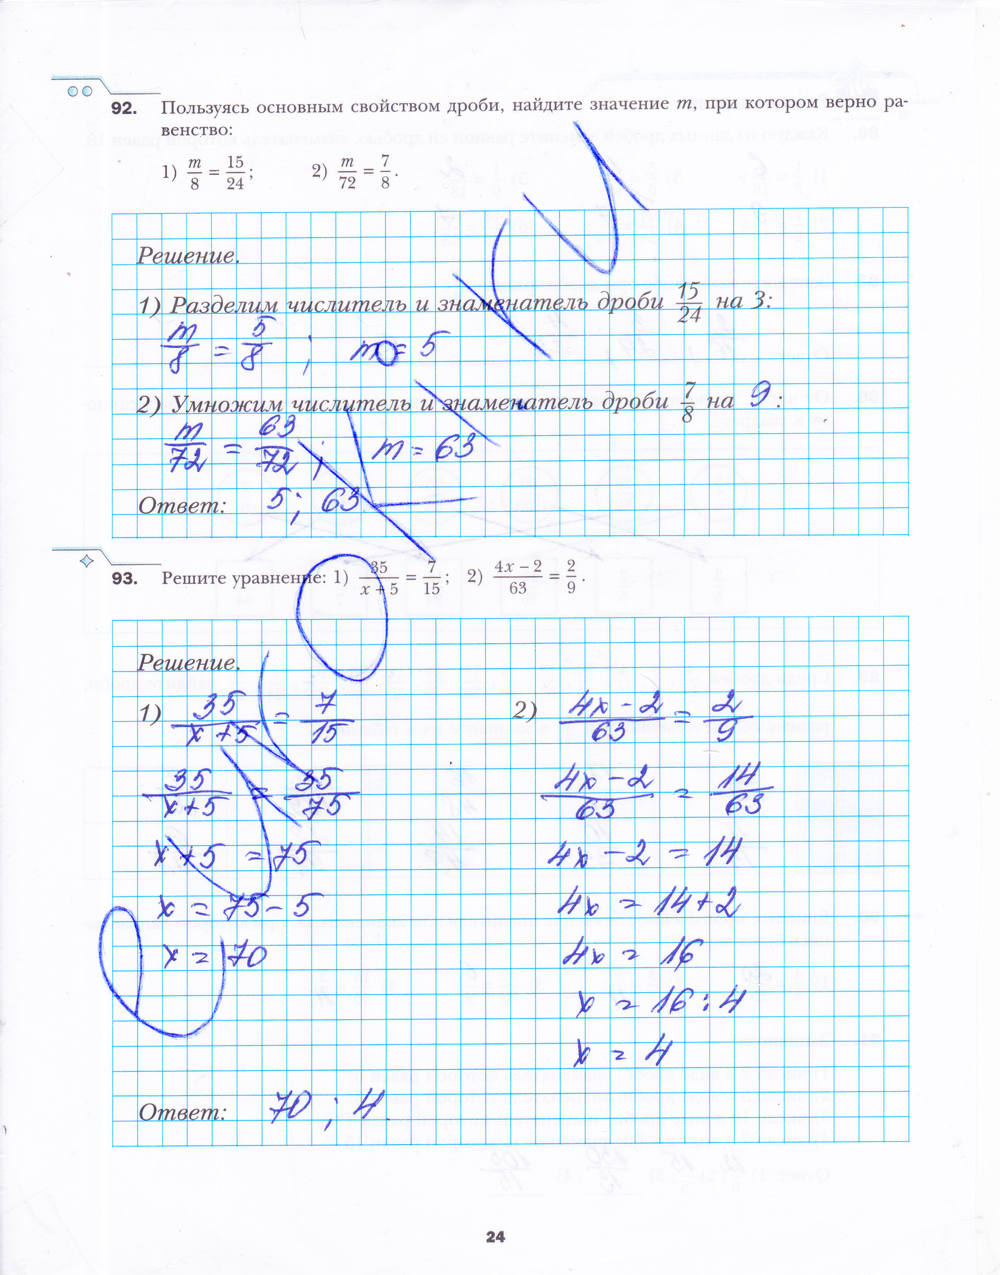 92. Пользуясь основным свойством дроби, найдите значение m, при котором верно ра-
венство:
1) m/8 = 15/24; 2) m/72 = 7/8.
Решение.
1) Разделим числитель и знаменатель дроби 15/24 на 3:
m/8 = 5/8 ; m = 5
2) Умножим числитель и знаменатель дроби 7/8 на 9:
m/72 = 63/72 ; m = 63
Ответ: 5; 63
93. Решите уравнение: 1) 35/(x + 5) = 7/15; 2) (4x − 2)/63 = 2/9.
Решение.
1) 35/(x + 5) = 7/15
35/(x + 5) = 35/75
x + 5 = 75
x = 75 − 5
x = 70
2) (4x − 2)/63 = 2/9
(4x − 2)/63 = 14/63
4x − 2 = 14
4x = 14 + 2
4x = 16
x = 16 : 4
x = 4
Ответ: 70 ; 4.
24